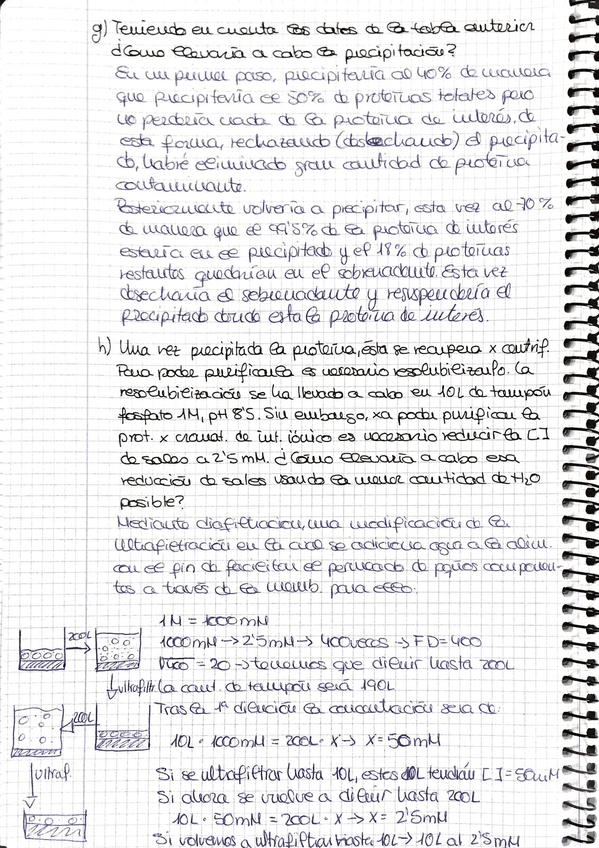 g) Teniendo en cuenta los datos de la tabla anterior
¿Cómo llevaría a cabo la precipitación?
En un primer paso, precipitaría al 40% de manera
que precipitaría el 50% de proteínas totales pero
no perdería nada de la proteína de interés, de
esta forma, rechazando (desechando) el precipita-
do, habré eliminado gran cantidad de proteína
contaminante.
Posteriormente volvería a precipitar, esta vez al 70%
de manera que el 99'5% de la proteína de interés
estaría en el precipitado y el 18% de proteínas
restantes quedarían en el sobrenadante. Esta vez
desecharía el sobrenadante y resuspendería el
precipitado donde está la proteína de interés.
h) Una vez precipitada la proteína, ésta se recupera x centrif.
Para poder purificarla es necesario resolubilizarlo. La
resolubilización se ha llevado a cabo en 10L de tampón
fosfato 1M, pH 8'5. Sin embargo, xa poder purificar la
prot. x cromat. de int. iónico es necesario reducir la [ ]
de sales a 2'5 mM. ¿Cómo llevaría a cabo esa
reducción de sales usando la menor cantidad de H2O
posible?
Mediante diafiltración, una modificación de la
ultrafiltración en la cual se adiciona agua a la alim.
con el fin de facilitar el permeado de pqños componen-
tes a través de la memb. para ello.
1M = 1000mM
200L
1000mM → 2'5mM → 400veces → FD=400
√400 = 20 → tenemos que diluir hasta 200L
↓ultrafiltr. La cant. de tampón será 190L
Tras la 1ª dilución la concentración será de:
200L
10L · 1000mM = 200L · X → X = 50mM
ultraf.
Si se ultrafiltrar hasta 10L, estos 10L tendrán [ ] = 50mM
Si ahora se vuelve a diluir hasta 200L
10L · 50mM = 200L · X → X = 2'5mM
Si volvemos a ultrafiltrar hasta 10L → 10L al 2'5mM